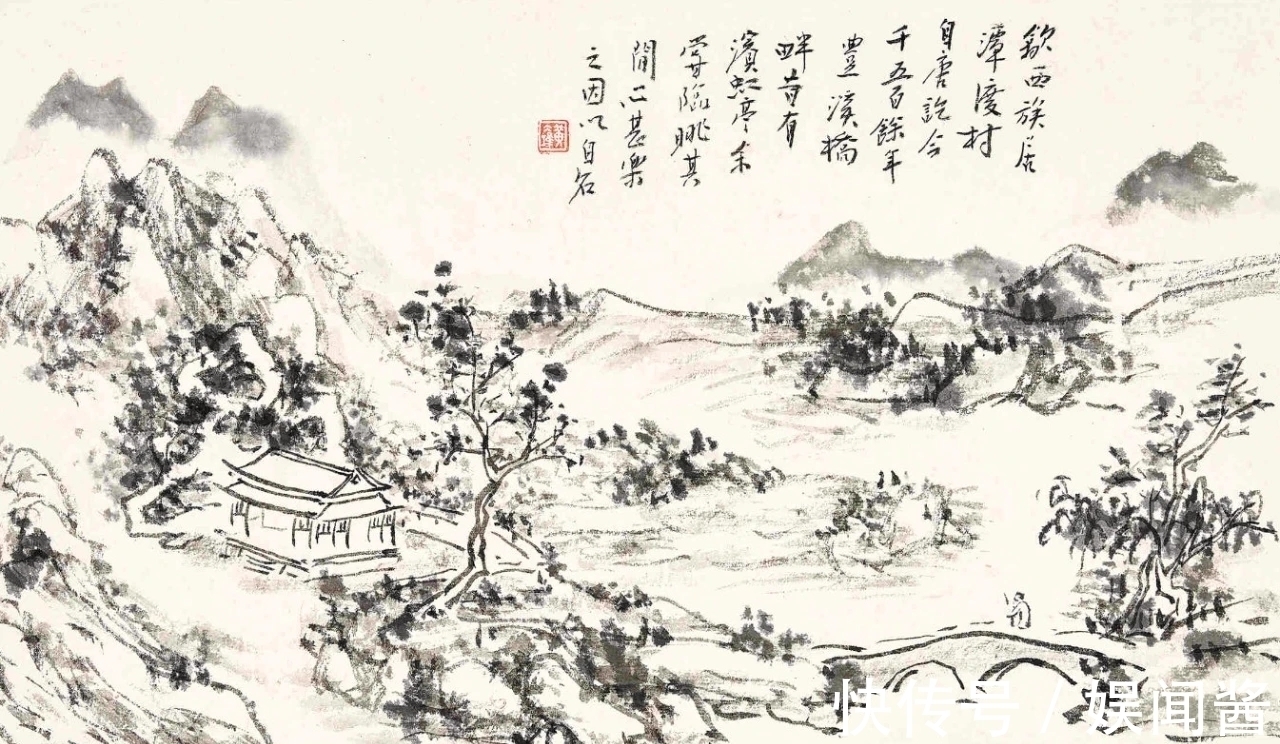 歙西族居
潭渡村
自唐訖今
千五百餘年
豐溪橋
畔昔有
濱虹亭余
嘗臨眺其
間心甚樂
之因以自名
快传号 / 娱闻酱